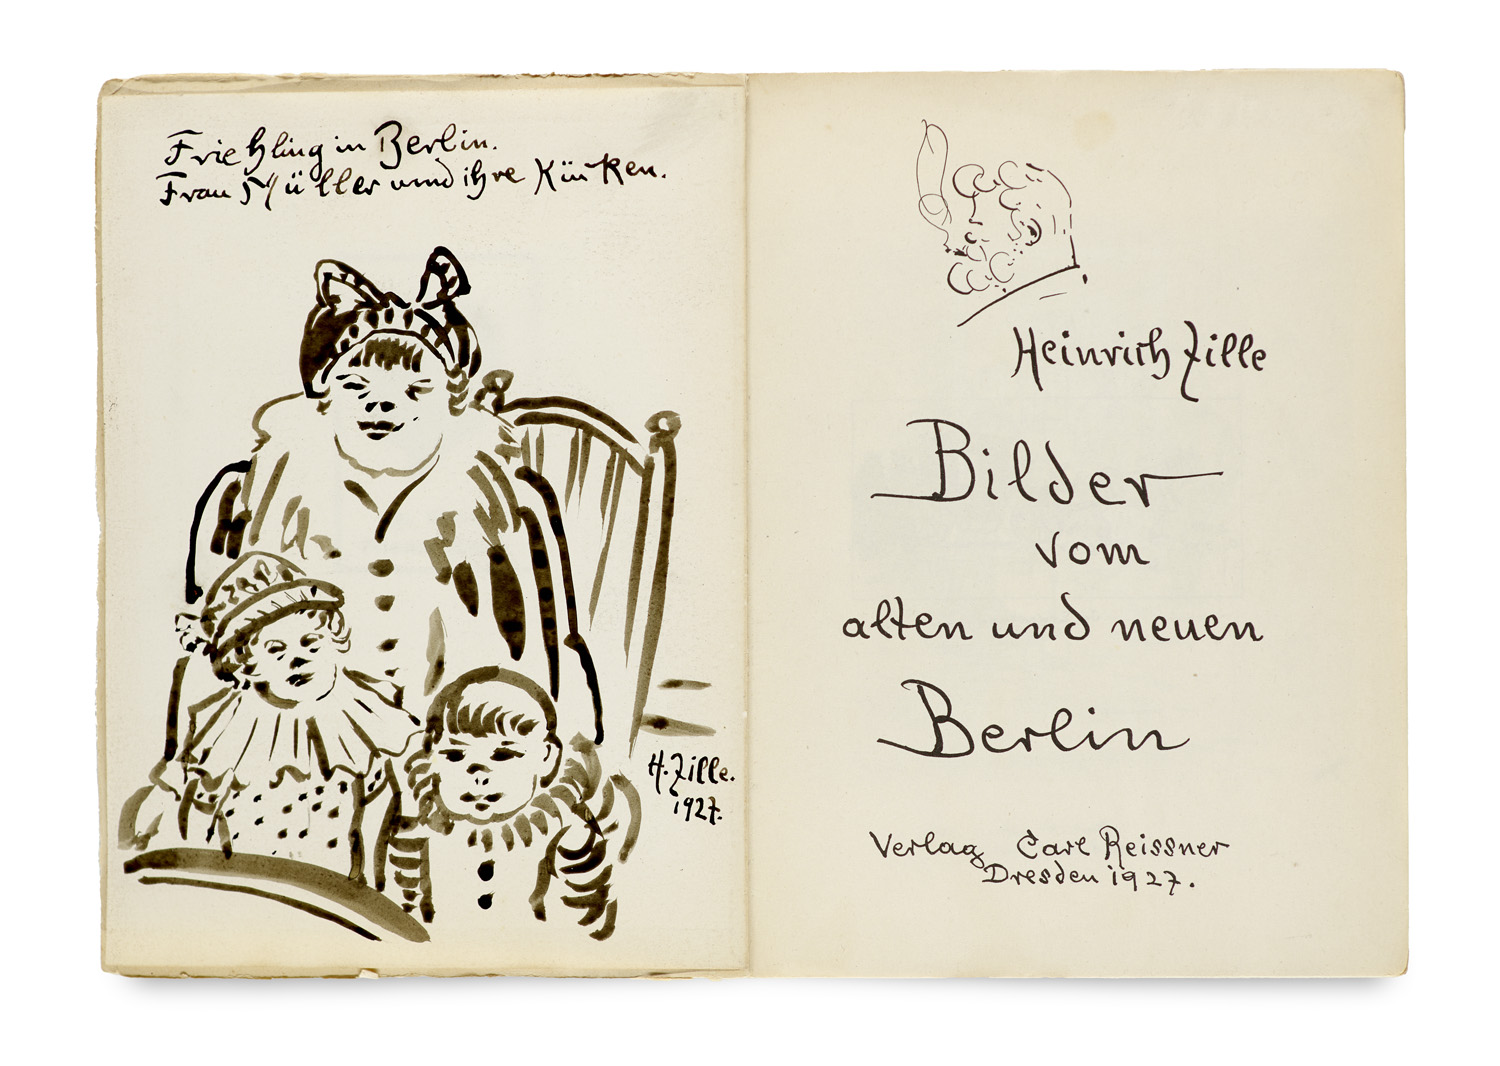 Friehling in Berlin.
Frau Müller und ihre Küken.
H. Zille.
1927.
Heinrich Zille
Bilder
vom
alten und neuen
Berlin
Verlag Carl Reissner
Dresden 1927.